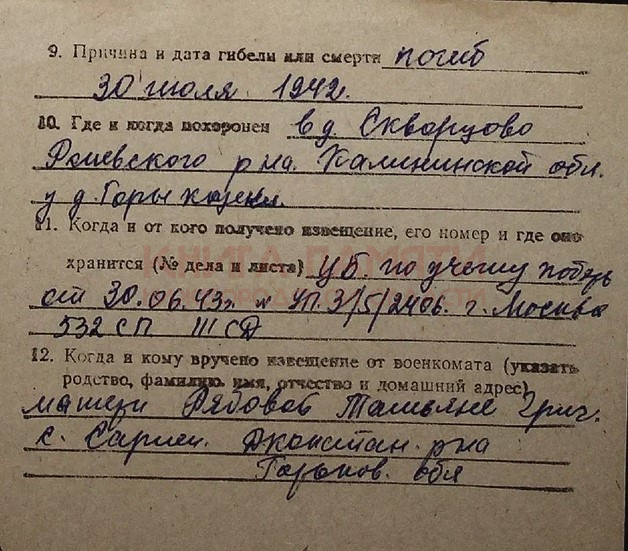 9. Причина и дата гибели или смерти погиб
30 июля 1942.
10. Где и когда похоронен в д. Скварцово
Ржевского р-на. Калининской обл.
у д. Горы
11. Когда и от кого получено извещение, его номер и где оно
хранится (№ дела и листа) ЦБ. по учету потерь
от 30.06.43г. № УП.3/5/2406. г. Москва
532 СП 111 СД
12. Когда и кому вручено извещение от военкомата (указать
родство, фамилию, имя, отчество и домашний адрес)
матери Рябовой Татьяне Григ.
с. Сарлей. Дконстан. р-на
Горьков. обл
КНИГА ПАМЯТИ